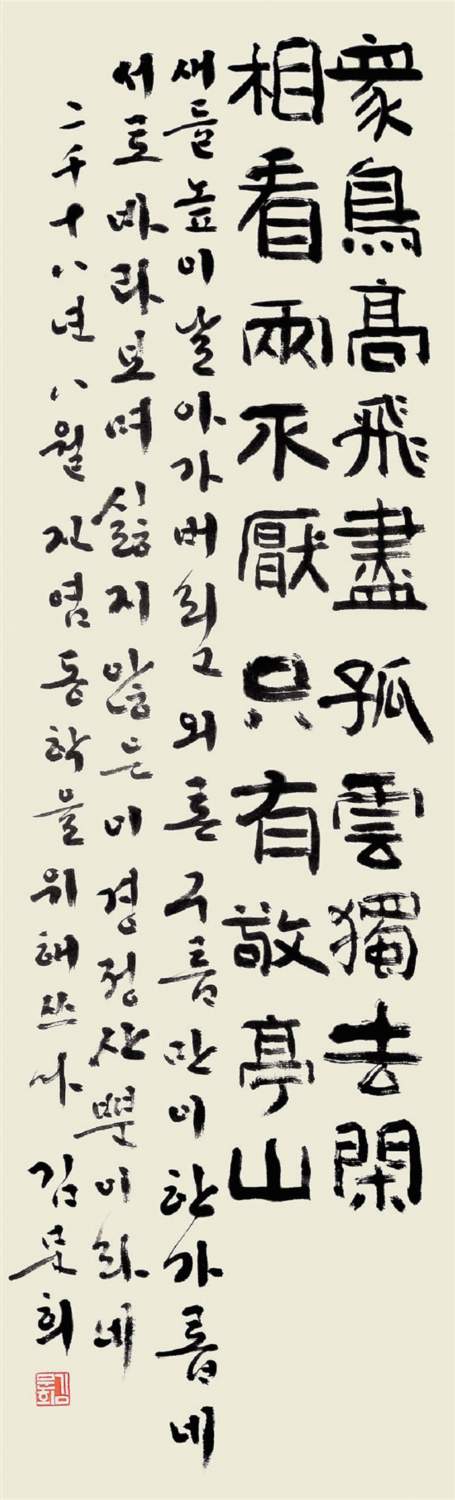 衆鳥高飛盡孤雲獨去閑
相看兩不厭只有敬亭山
새들 높이 날아가 버리고 외론 구름만이 한가롭네
서로 바라보며 싫지 않은 이 경정산뿐이라네
二千十八년 八월 동학을 위해 쓰다